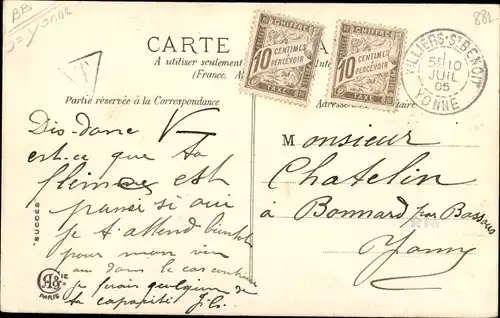 BB
Yonne
882
CARTE
A utiliser seulement
(France, Al
Partie réservée à la Correspondance
Adresse
taire
CHIFFRE
10
CENTIMES
A
PERCEVOIR
TAXE
CHIFFRE
10
CENTIMES
A
PERCEVOIR
TAXE
VILLIERS-ST BENOIT
5E 10
JUIL
05
YONNE
T
Dis-donc V
est-ce que ta
est
passé si oui
je t'attend bientôt
pour mon vin
ou dans le cas contraire
je ferais quelqu'un de
ta capacité
Monsieur
Chatelin
à Bonnard par Bassou
Yonne
"SUCCES"
CIE
PARIS